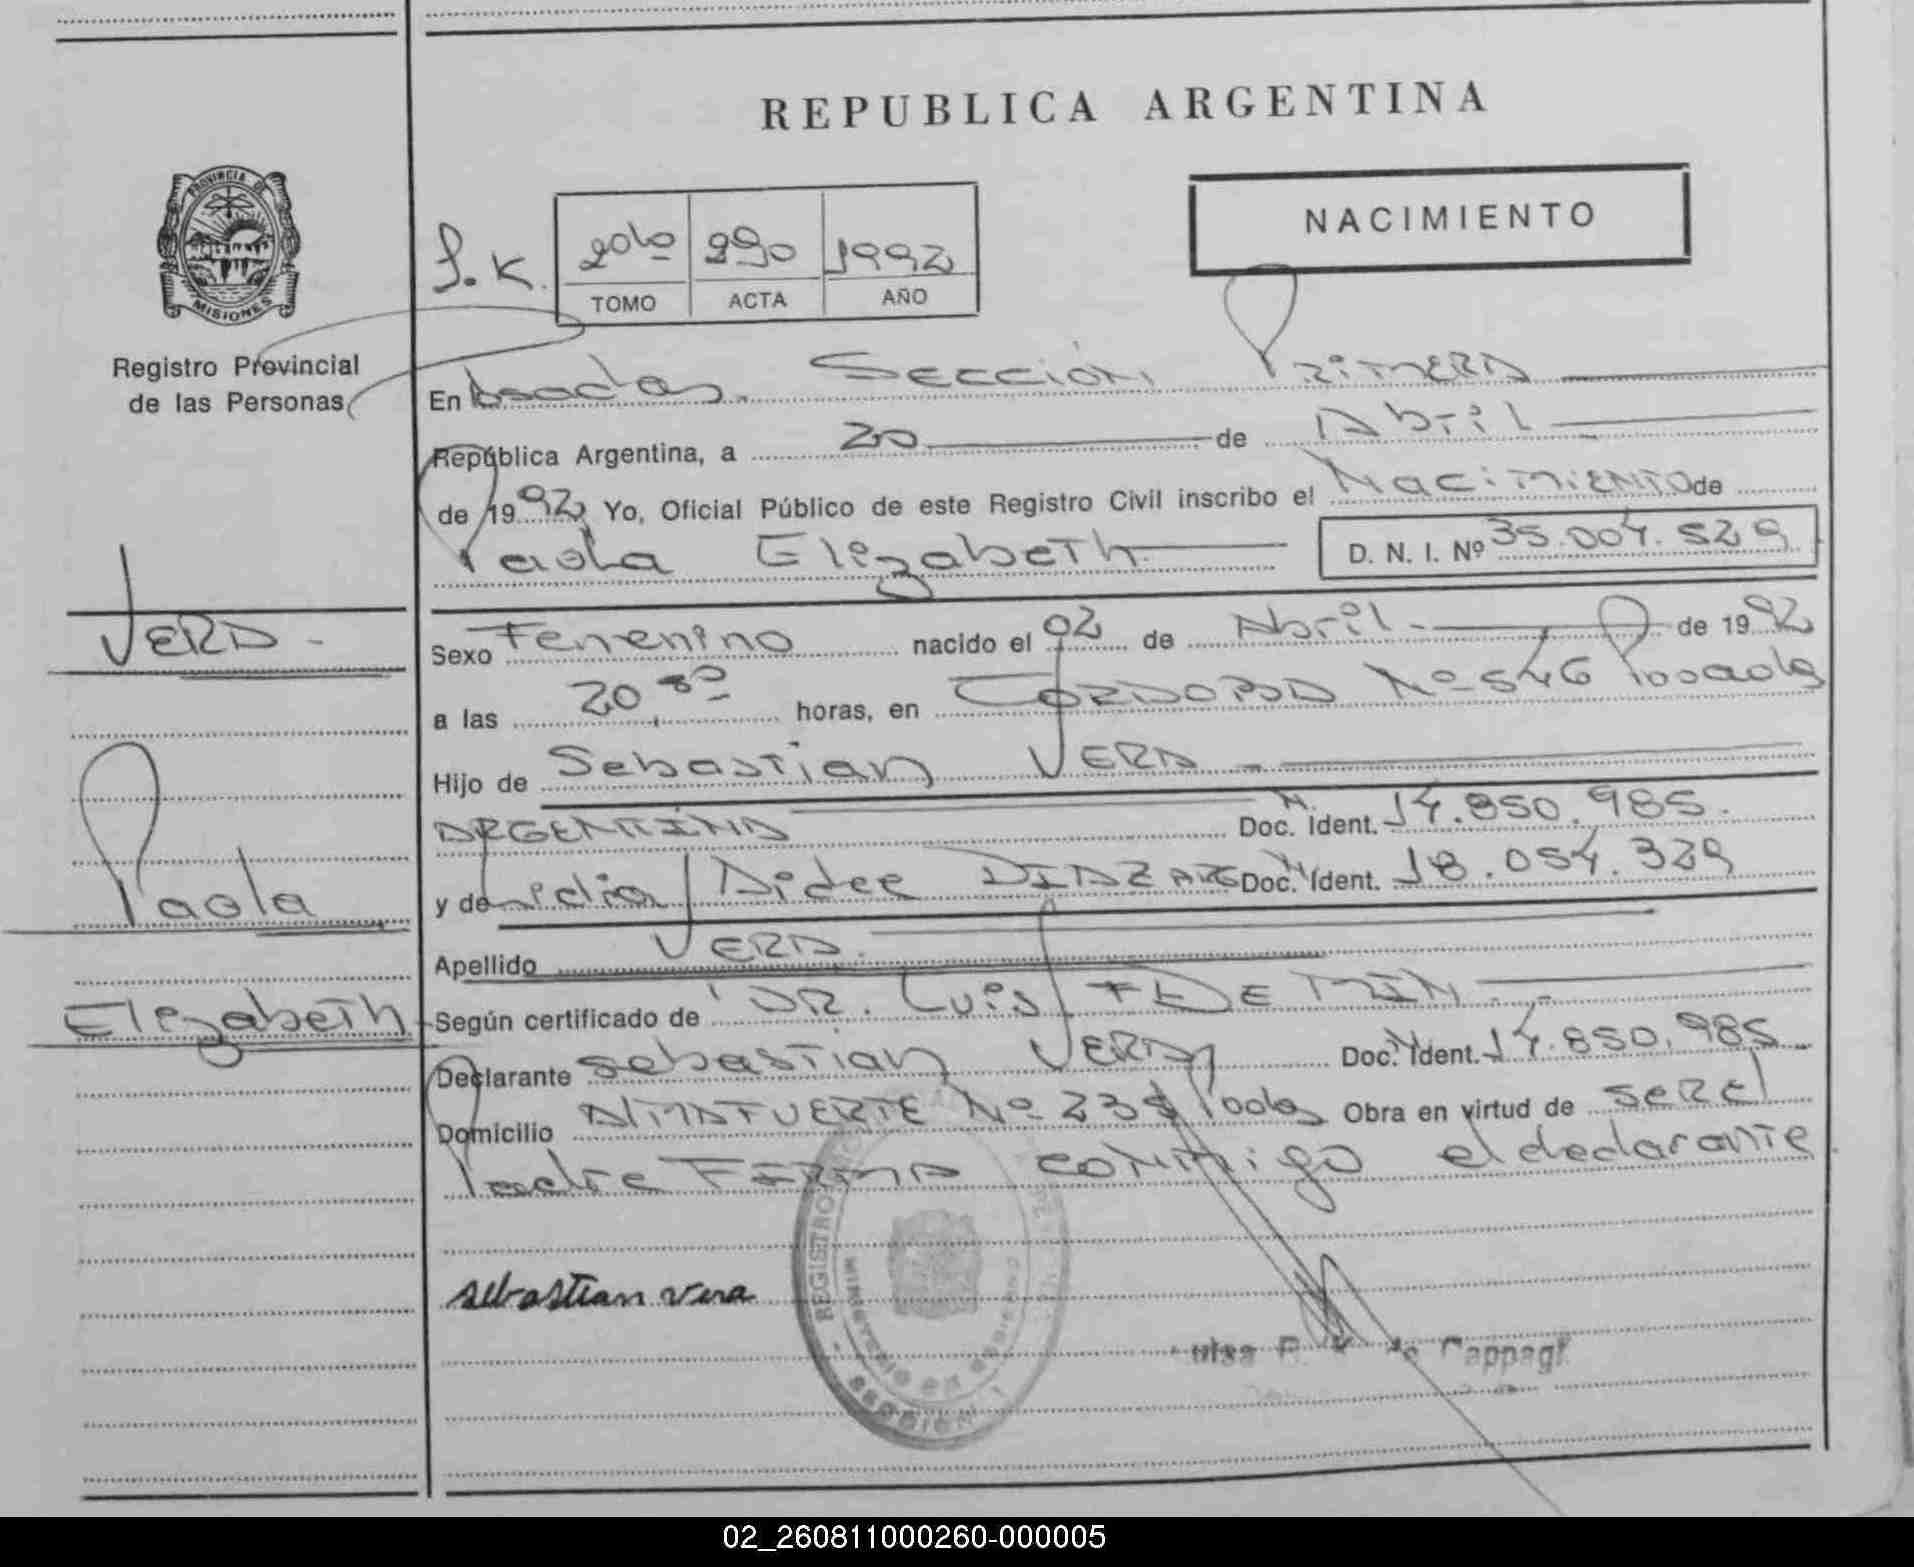 REPUBLICA ARGENTINA
NACIMIENTO
PROVINCIA DE
MISIONES
Registro Provincial
de las Personas
S.K.
2do 290 1992
TOMO ACTA AÑO
En Posadas. Sección Primera
República Argentina, a 20 de Abril
de 1992 Yo, Oficial Público de este Registro Civil inscribo el Nacimiento de
Paola Elizabeth D. N. I. Nº 35.004.529
VERA
Sexo Femenino nacido el 02 de Abril. de 1992
a las 20,30 horas, en CORDOBA Nº 546 Posadas
Hijo de Sebastian VERA
ARGENTINA Doc. Ident. 14.850.985.
y de Lidia Aidee DIAZ ARG Doc. Ident. 18.054.329
Paola
Apellido VERA.
Elizabeth
Según certificado de DR. Luis
Declarante Sebastian VERA Doc. Ident. 14.850.985
Domicilio ALMAFUERTE Nº Pdas Obra en virtud de ser el
Padre FIRMA conmigo el declarante
sebastian vera
REGISTRO
MINISTERIO DE GOBIERNO
SECCION 1
Cappagl
02_260811000260-000005